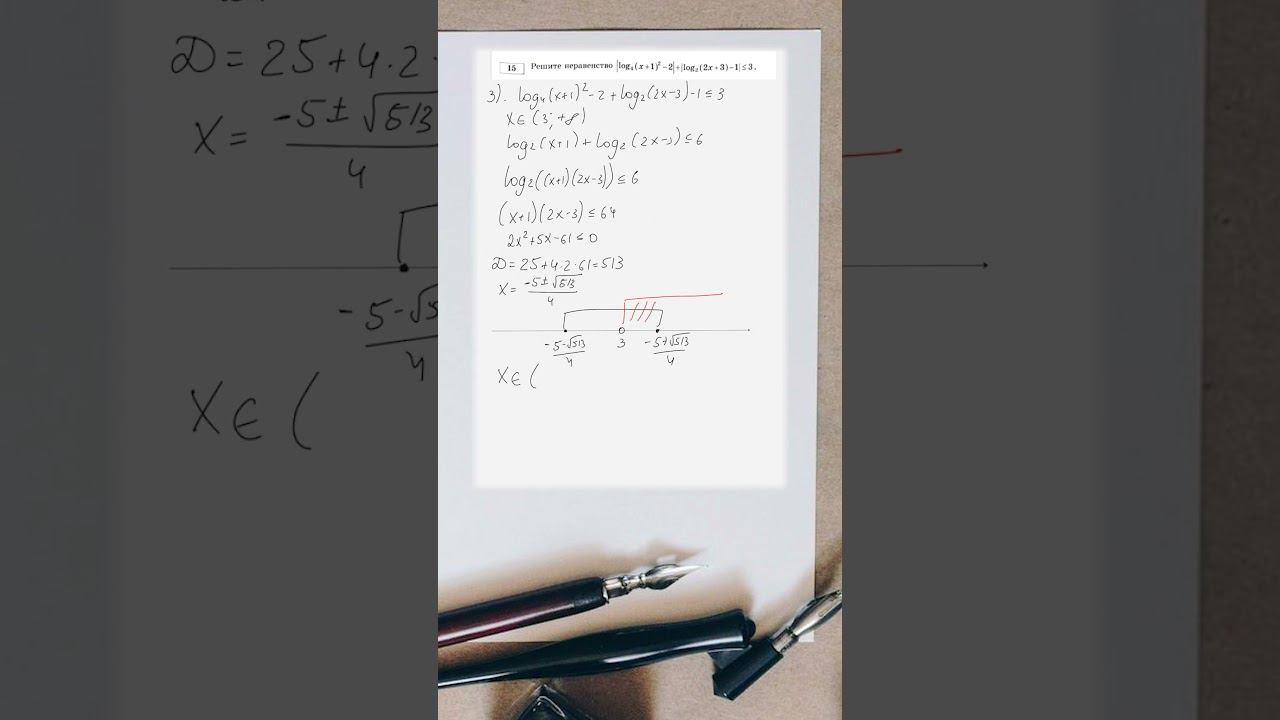 15 Решите неравенство |log₄(x+1)²−2|+|log₂(2x+3)−1|≤3.
3). log₄(x+1)²-2+log₂(2x-3)-1≤3
x∈(3; +∞)
log₂(x+1)+log₂(2x-3)≤6
log₂((x+1)(2x-3))≤6
(x+1)(2x-3)≤64
2x²+5x-61≤0
D=25+4·2·61=513
x=
-5±√513
4
-5-√513
4
3
-5+√513
4
X∈(
D=25+4·2·
X=
-5±√513
4
-5-√5
4
X∈(